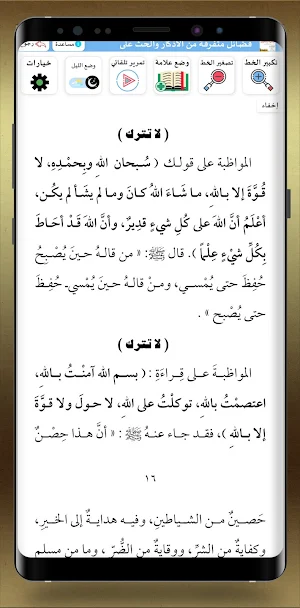 فضائل متفرقة من الأذكار والحث على
مساعدة
تكبير الخط
تصغير الخط
وضع علامة
تمرير تلقائي
وضع الليل
خيارات
إخفاء
( لا تترك )
المواظبة على قولك ( سُبحان اللهِ وبِحمْدِهِ، لا
قُوَّةَ إلا باللهِ، ما شَاءَ اللهُ كانَ وما لم يشَأْ لم يكُن،
أعْلَمُ أنَّ اللهَ على كُلِ شيءٍ قديرٌ، وأنَّ اللهَ قَدْ أحَاطَ
بِكُلِّ شيْءٍ عِلْماً ). قال ﷺ: « من قالهُ حينَ يُصْبِحُ
حُفِظَ حتى يُمْسـي، ومنْ قالهُ حينَ يُمْسي۔ حُفِظَ
حتى يُصْبح » .
( لا تترك )
المواظبةَ على قِراءَةِ : ( بسم الله آمنْتُ بـاللهِ،
اعتصمْتُ باللهِ، توكلْتُ على اللهِ، لا حول ولا قـوَّةَ
إلا باللهِ )، فقد جاء عنهُ ﷺ : « أنَّ هذا حِصْنٌ
١٦
حَصينٌ من الشياطينِ، وفيه هدايةٌ إلى الخيرِ،
وكفايةٌ من الشرِّ، ووقايةٌ من الضُّرّ، وما من مسلم